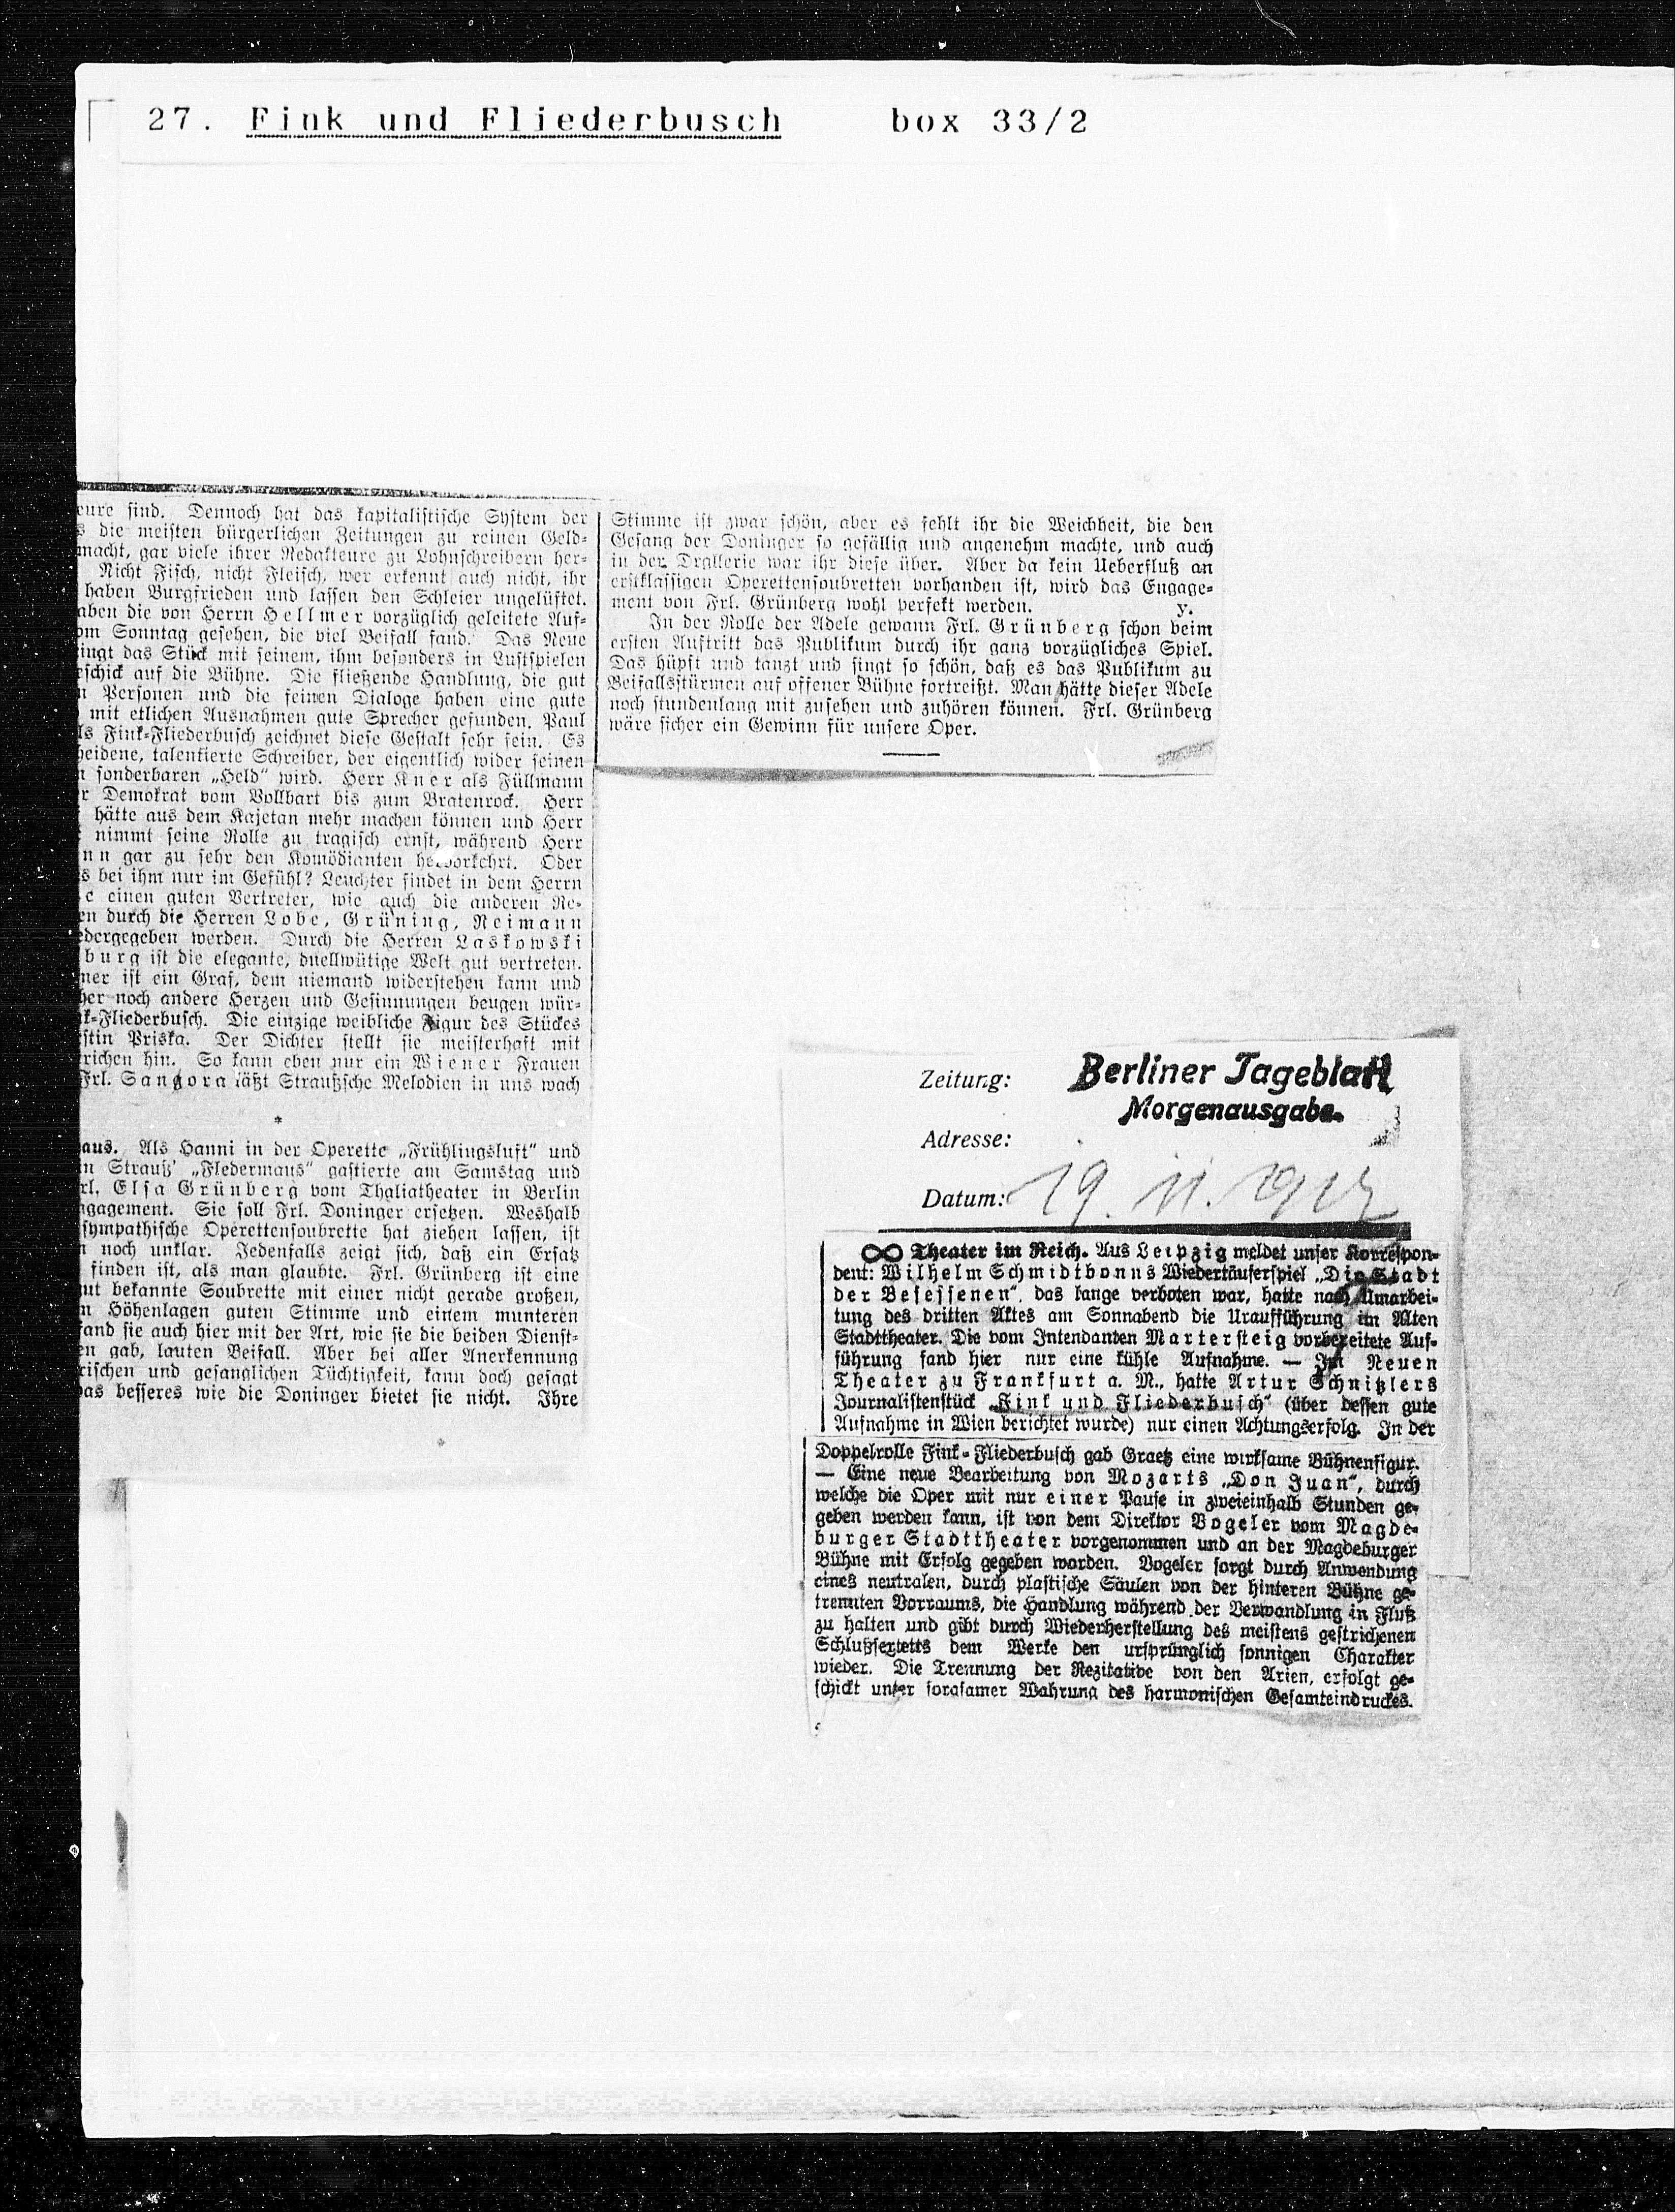 27. Fink und Fliederbusch box 33/2
eure sind. Dennoch hat das kapitalistische System der
s die meisten bürgerlichen Zeitungen zu reinen Geld-
macht, gar viele ihrer Redakteure zu Lohnschreibern her-
Nicht Fisch, nicht Fleisch, wer erkennt auch nicht, ihr
haben Burgfrieden und lassen den Schleier ungelüftet.
aben die von Herrn Hellmer vorzüglich geleitete Auf-
om Sonntag gesehen, die viel Beifall fand. Das Neue
ingt das Stück mit seinem, ihm besonders in Lustspielen
eschick auf die Bühne. Die fließende Handlung, die gut
n Personen und die feinen Dialoge haben eine gute
mit etlichen Ausnahmen gute Sprecher gefunden. Paul
ls Fink-Fliederbusch zeichnet diese Gestalt sehr fein. Es
heidene, talentierte Schreiber, der eigentlich wider seinen
n sonderbaren „Held" wird. Herr Kner als Füllmann
r Demokrat vom Vollbart bis zum Bratenrock. Herr
hätte aus dem Kajetan mehr machen können und Herr
nimmt seine Rolle zu tragisch ernst, während Herr
nn gar zu sehr den Komödianten hervorkehrt. Oder
s bei ihm nur im Gefühl? Leuchter findet in dem Herrn
e einen guten Vertreter, wie auch die anderen Re-
en durch die Herren Lobe, Grüning, Reimann
edergegeben werden. Durch die Herren Laskowski
burg ist die elegante, duellwütige Welt gut vertreten.
ner ist ein Graf, dem niemand widerstehen kann und
her noch andere Herzen und Gesinnungen beugen wür-
k-Fliederbusch. Die einzige weibliche Figur des Stückes
stin Priska. Der Dichter stellt sie meisterhaft mit
richen hin. So kann eben nur ein Wiener Frauen
Frl. Sangora läßt Straußsche Melodien in uns wach
*
aus. Als Hanni in der Operette „Frühlingsluft" und
in Strauß' „Fledermaus" gastierte am Samstag und
rl. Elsa Grünberg vom Thaliatheater in Berlin
ngagement. Sie soll Frl. Doninger ersetzen. Weshalb
sympathische Operettensoubrette hat ziehen lassen, ist
n noch unklar. Jedenfalls zeigt sich, daß ein Ersatz
finden ist, als man glaubte. Frl. Grünberg ist eine
ut bekannte Soubrette mit einer nicht gerade großen,
n Höhenlagen guten Stimme und einem munteren
fand sie auch hier mit der Art, wie sie die beiden Dienst-
en gab, lauten Beifall. Aber bei aller Anerkennung
rischen und gesanglichen Tüchtigkeit, kann doch gesagt
as besseres wie die Doninger bietet sie nicht. Ihre
Stimme ist zwar schön, aber es fehlt ihr die Weichheit, die den
Gesang der Doninger so gefällig und angenehm machte, und auch
in der Drallerie war ihr diese über. Aber da kein Ueberfluß an
erstklassigen Operettensoubretten vorhanden ist, wird das Engage-
ment von Frl. Grünberg wohl perfekt werden. y.
In der Rolle der Adele gewann Frl. Grünberg schon beim
ersten Auftritt das Publikum durch ihr ganz vorzügliches Spiel.
Das hüpft und tanzt und singt so schön, daß es das Publikum zu
Beifallsstürmen auf offener Bühne fortreißt. Man hätte dieser Adele
noch stundenlang mit zusehen und zuhören können. Frl. Grünberg
wäre sicher ein Gewinn für unsere Oper.
Zeitung: Berliner Tageblatt
Morgenausgabe.
Adresse:
Datum: 19. 11. 1917
∞ Theater im Reich. Aus Leipzig meldet unser Korrespon-
dent: Wilhelm Schmidtbonns Wiedertäuferspiel „Die Stadt
der Besessenen", das lange verboten war, hatte nach Umarbei-
tung des dritten Aktes am Sonnabend die Uraufführung im Alten
Stadttheater. Die vom Intendanten Martersteig vorbereitete Auf-
führung fand hier nur eine kühle Aufnahme. — Im Neuen
Theater zu Frankfurt a. M., hatte Artur Schnitzlers
Journalistenstück „Fink und Fliederbusch" (über dessen gute
Aufnahme in Wien berichtet wurde) nur einen Achtungserfolg. In der
Doppelrolle Fink-Fliederbusch gab Graetz eine wirksame Bühnenfigur.
— Eine neue Bearbeitung von Mozarts „Don Juan", durch
welche die Oper mit nur einer Pause in zweieinhalb Stunden ge-
geben werden kann, ist von dem Direktor Vogeler vom Magde-
burger Stadttheater vorgenommen und an der Magdeburger
Bühne mit Erfolg gegeben worden. Vogeler sorgt durch Anwendung
eines neutralen, durch plastische Säulen von der hinteren Bühne ge-
trennten Vorraums, die Handlung während der Verwandlung in Fluß
zu halten und gibt durch Wiederherstellung des meistens gestrichenen
Schlußsextetts dem Werke den ursprünglich sonnigen Charakter
wieder. Die Trennung der Rezitative von den Arien, erfolgt ge-
schickt unter sorgsamer Wahrung des harmonischen Gesamteindruckes.